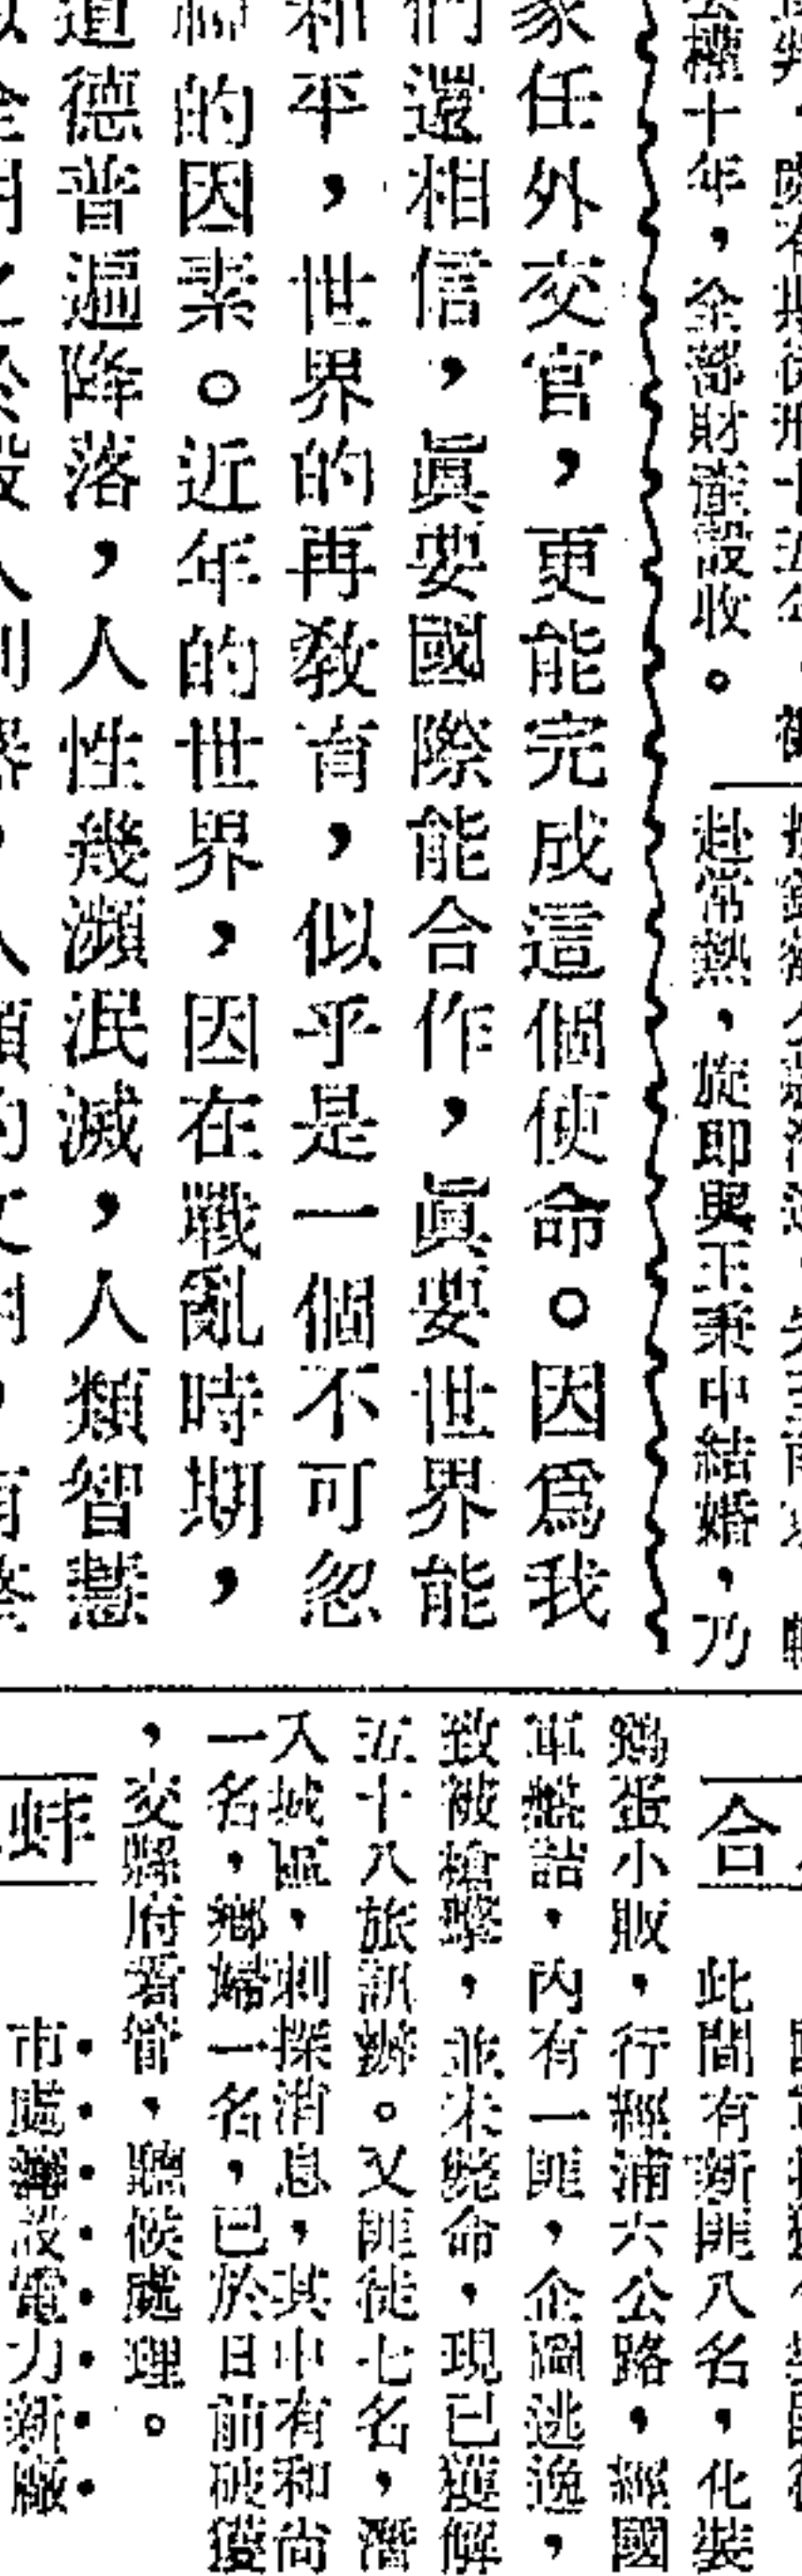 公權十年，全部財產設收。
赴常熱，旋即與王秉中結婚，乃
家任外交官，更能完成這個使命。因爲我
們還相信，眞要國際能合作，眞要世界能
和平，世界的再教育，似乎是一個不可忽
的因素。近年的世界，因在戰亂時期，
道德普遍降落，人性幾瀕泯滅，人類智慧
合
此間有新匪八名，化裝
鷄蛋小販，行經浦六公路，經國
軍盤詰，內有一匪，企圖逃逸，
致被槍擊，並未斃命，現已獲解
五十八旅訊辦。又匪徒七名，潛
入城區，刺探消息，其中有和尚
一名，鄉婦一名，已於日前破獲
，交縣府看管，聽候處理。
蚌
市處籌設電力新廠